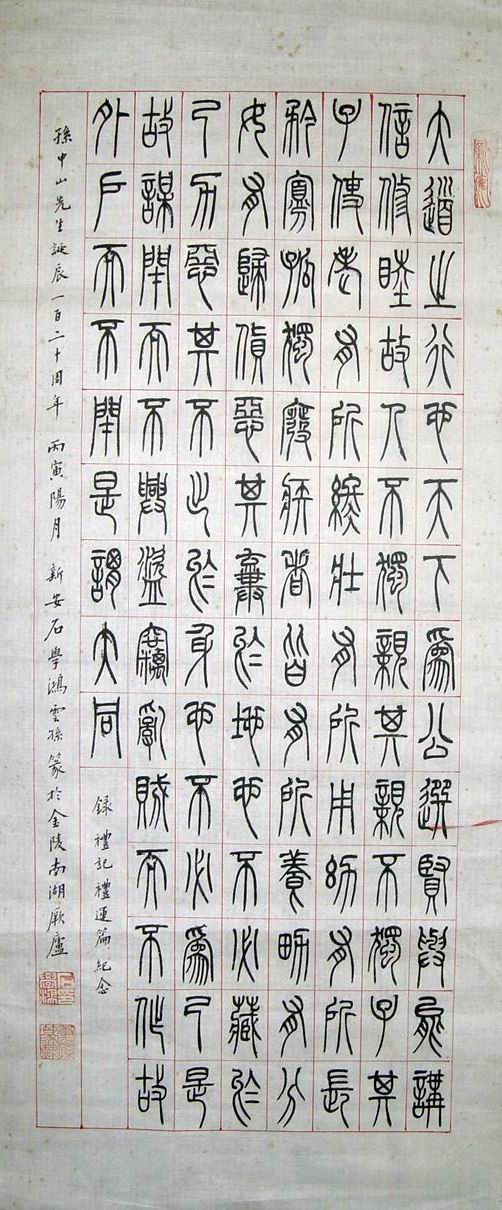 大道之行也天下為公選賢與能講
信修睦故人不獨親其親不獨子其
子使老有所終壯有所用幼有所長
矜寡孤獨廢疾者皆有所養男有分
女有歸貨惡其棄於地也不必藏於
己力惡其不出於身也不必為己是
故謀閉而不興盜竊亂賊而不作故
外戶而不閉是謂大同
録禮記禮運篇紀念
孫中山先生誕辰一百二十周年 丙寅陽月 新安石學鴻雲孫篆於金陵南湖厥廬